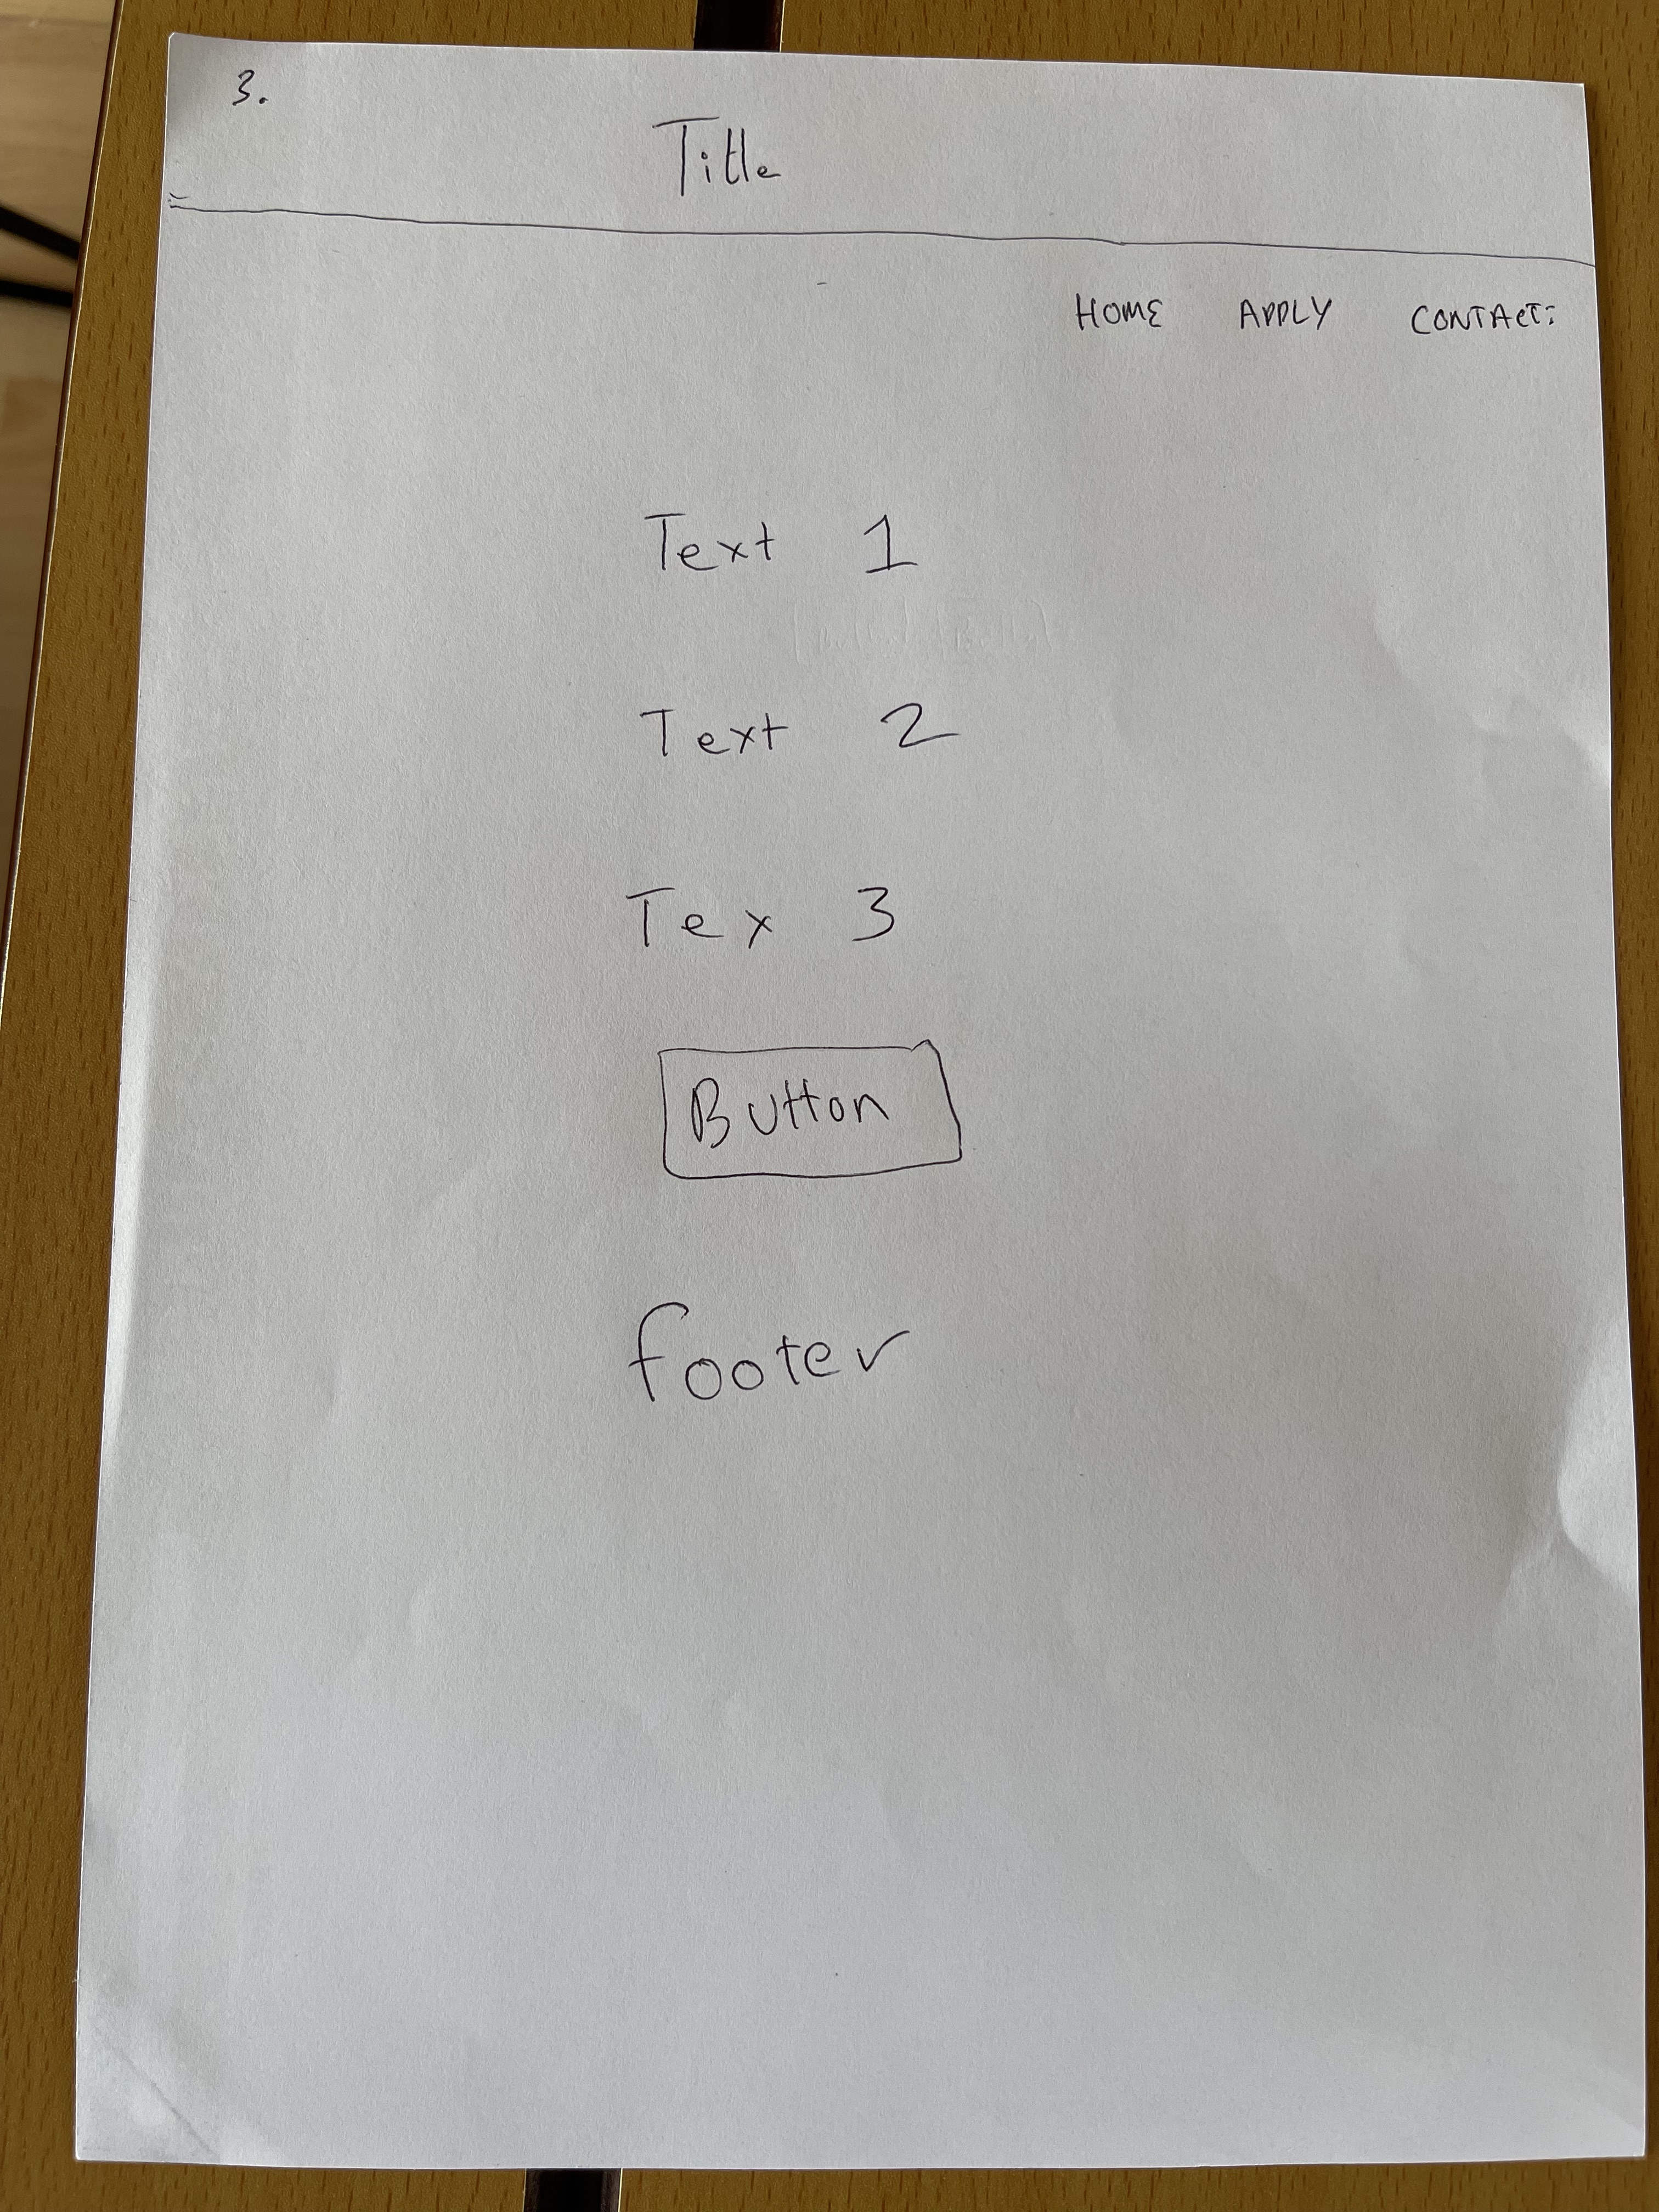 3.
Title
HOME APPLY CONTACT:
Text 1
Text 2
Tex 3
Button
footer